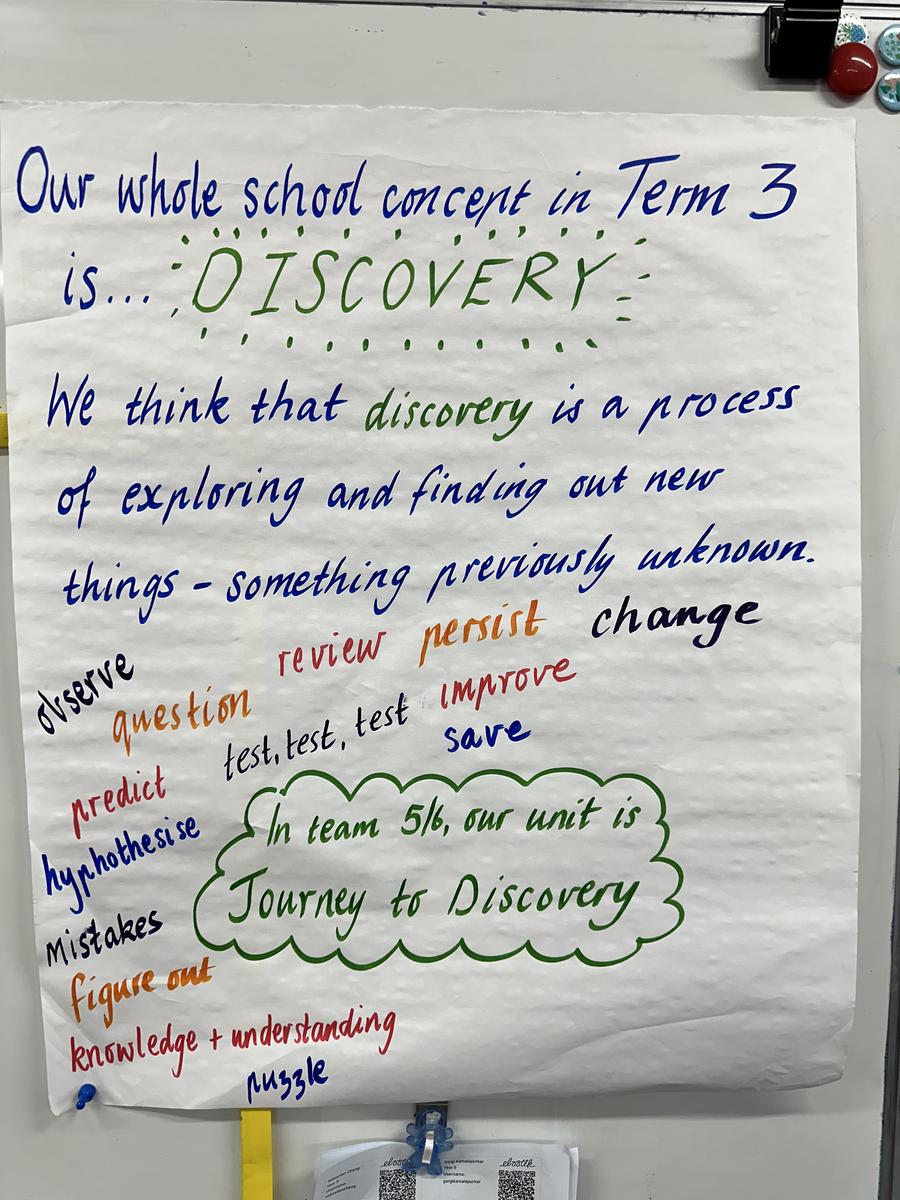 Our whole school concept in Term 3
is... DISCOVERY
We think that discovery is a process
of exploring and finding out new
things - something previously unknown.
observe
review
persist
change
question
test, test, test
improve
save
predict
hyphothesise
mistakes
figure out
knowledge + understanding
puzzle
In team 5/6, our unit is
Journey to Discovery
Year 5
Username: